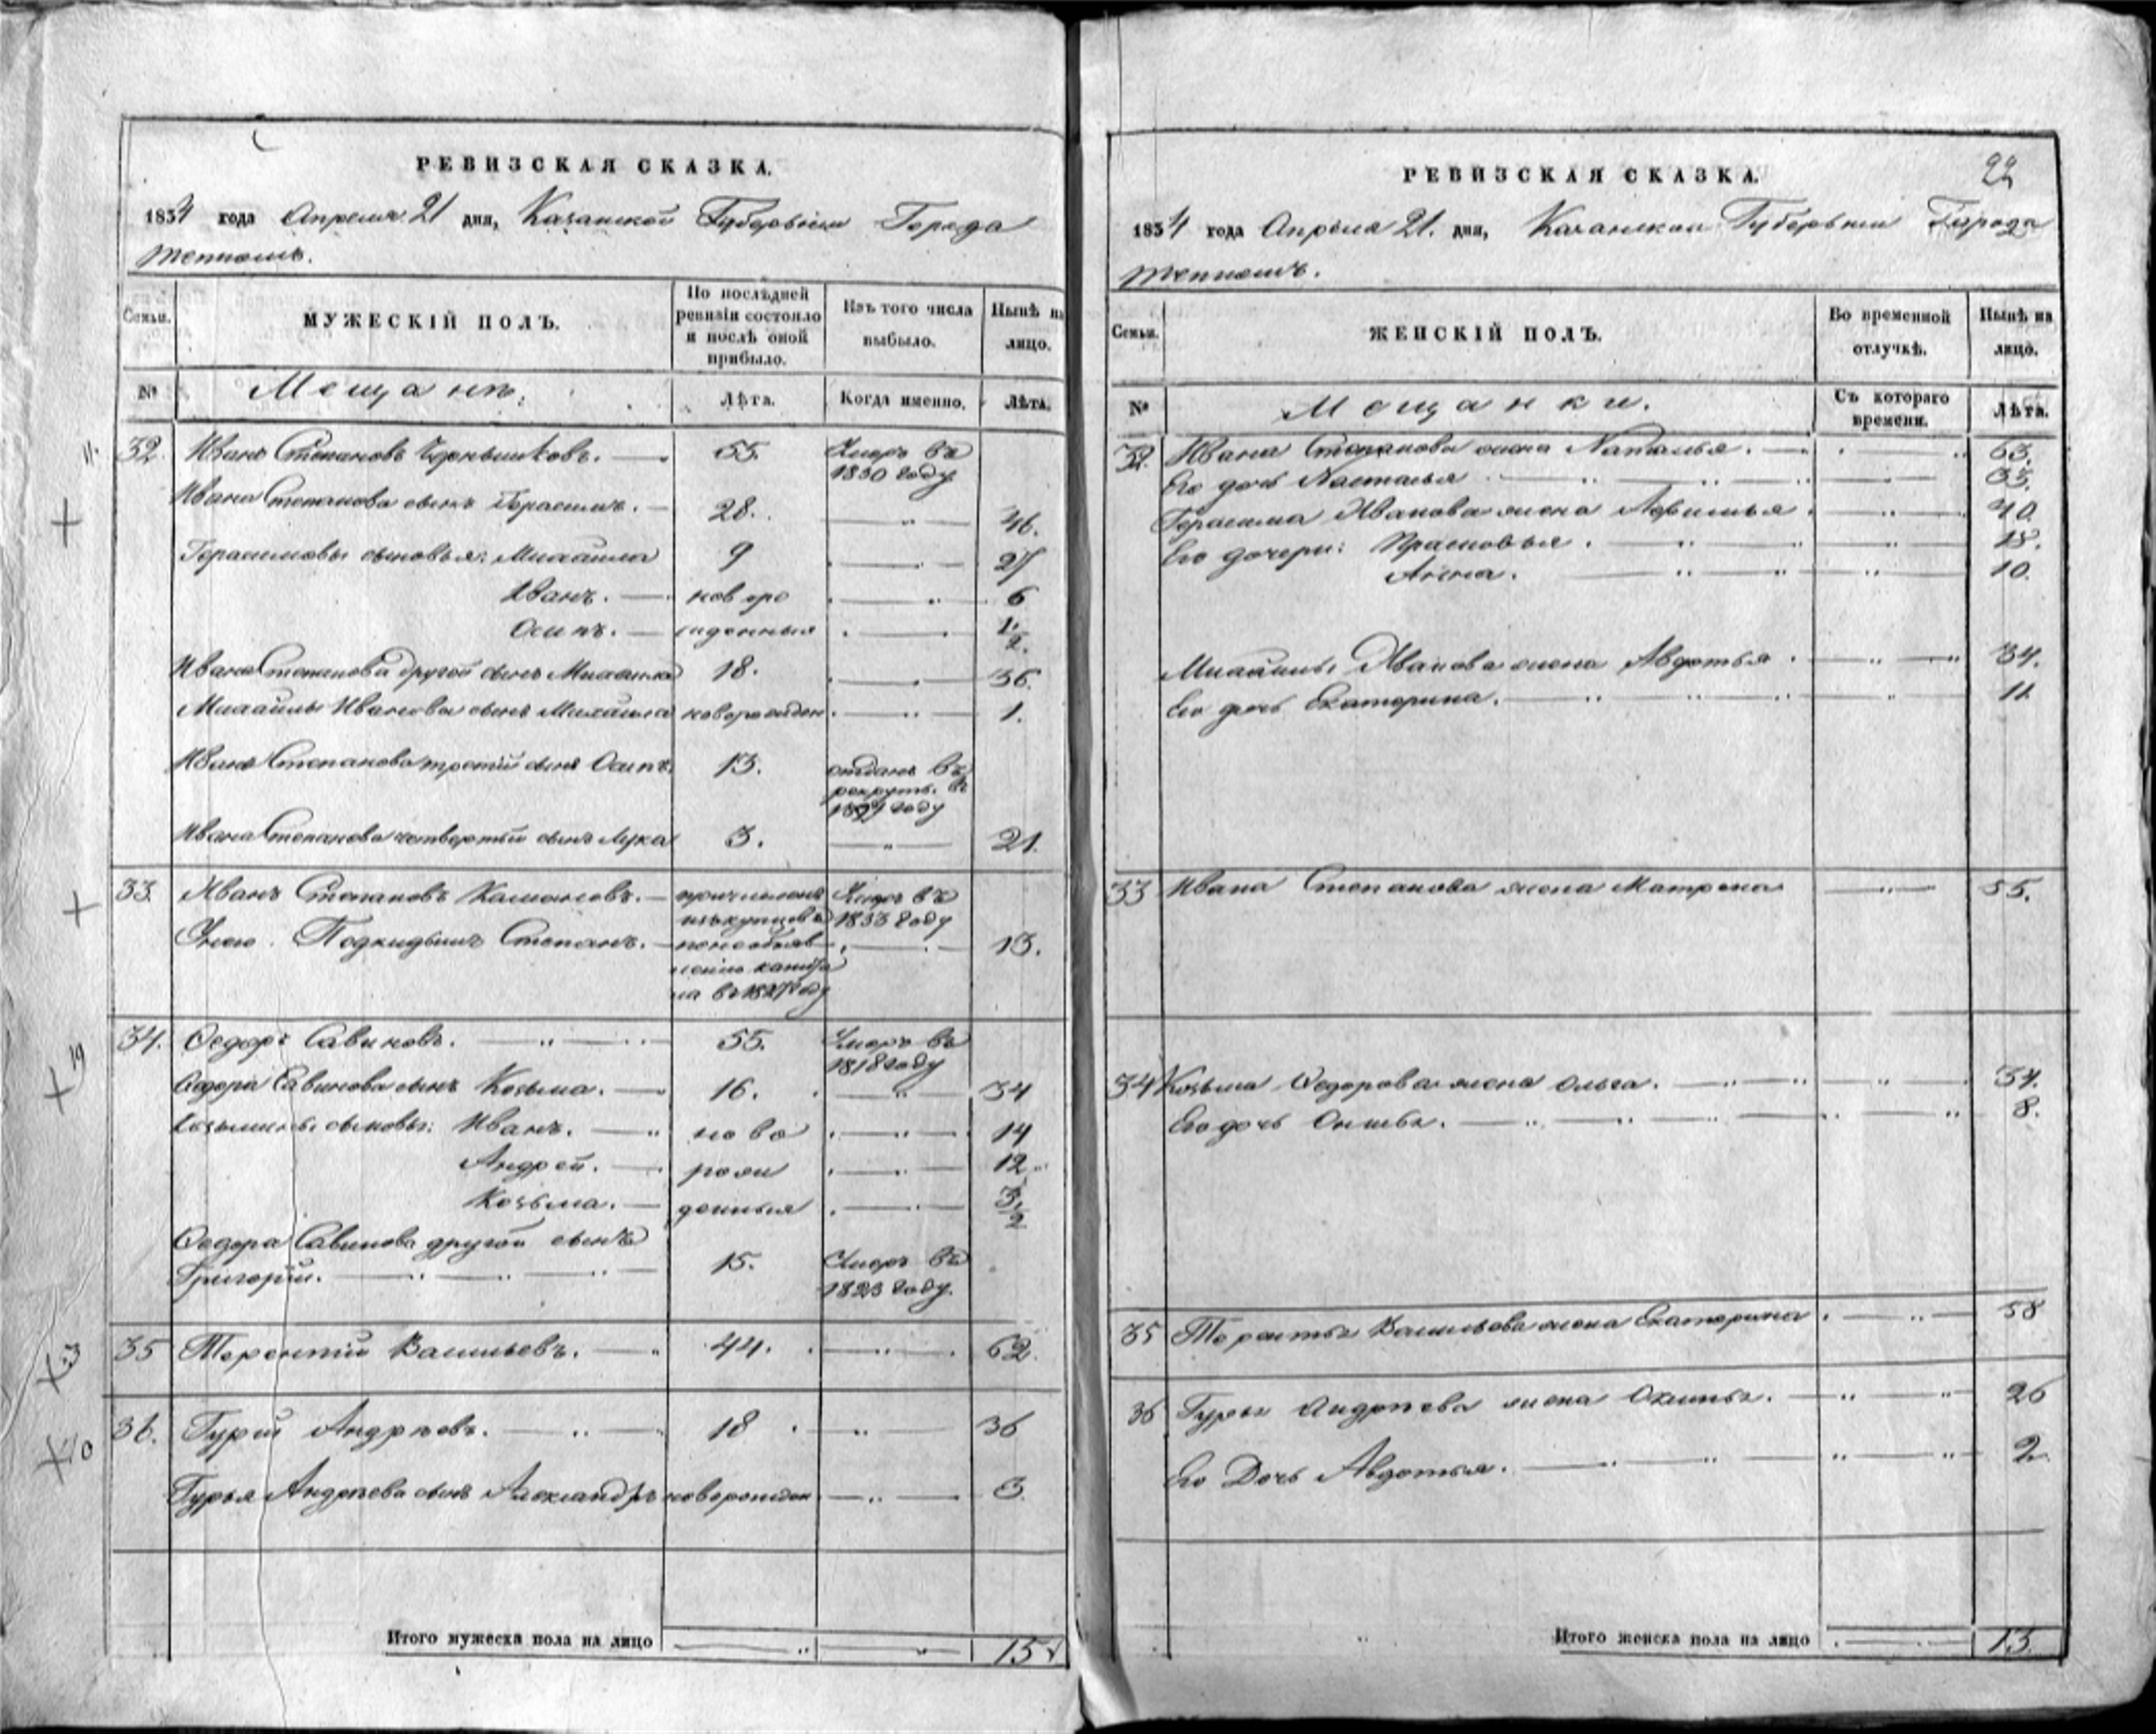 РЕВИЗСКАЯ СКАЗКА.
1834 года Апреля 21 дня, Казанской Губернии Города
Тетюшъ.
Семьи.
МУЖЕСКІЙ ПОЛЪ.
По послѣдней ревизіи состояло и послѣ оной прибыло.
Изъ того числа выбыло.
Нынѣ на лицо.
№
Мещанъ:
Лѣта.
Когда именно.
Лѣта.
11.
32. Иванъ Степановъ Чернышковъ. — 55. Умеръ въ 1830 году
Ивана Степанова сынъ Герасимъ. — 28. 46.
Герасимовы сыновья: Михайла 9 27
Иванъ. — новоро 6
Осипъ. — жденныя 1 1/2
Ивана Степанова другой сынъ Михайла 18. 36.
Михайлы Иванова сынъ Михайла новорожден 1.
Ивана Степанова третій сынъ Осипъ. 13. отданъ въ рекруты въ году
Ивана Степанова четвертый сынъ Лука 3. 21.
33. Иванъ Степановъ — причисленъ Умеръ въ
изъ купцовъ 1833 году
У него Подкидышъ Степанъ. — по необъяв 13.
ленію капита
ла въ 1827 году
19
34. Федоръ Савиновъ. 55. Умеръ въ 1818 году
Федора Савинова сынъ Козьма. — 16. 34
Козьмины сыновья: Иванъ. — ново 14
Андрей. — рож 12
Козьма. — денныя 3 1/2
Федора Савинова другой сынъ
Григорій. 15. Умеръ въ 1823 году.
35 Терентій Васильевъ. — 44. 62.
36. Гурій Андреевъ. 18 36
Гурья Андреева сынъ Александръ новорожден 3.
Итого мужеска пола на лицо 15
22
РЕВИЗСКАЯ СКАЗКА.
1834 года Апреля 21. дня, Казанской Губерніи Города
Тетюшъ.
Семьи.
ЖЕНСКІЙ ПОЛЪ.
Во временной отлучкѣ.
Нынѣ на лицо.
№
Мещанки.
Съ котораго времени.
Лѣта.
32. Ивана Степанова жена Наталья. 63.
Его дочь Настасья 33.
Герасима Иванова жена Афимья. 40
Его дочери: Прасковья. 18.
Анна. 10.
Михайлы Иванова жена Авдотья 34.
Его дочь Екатерина. 11
33 Ивана Степанова жена Матрена 55.
34 Козьма Федорова жена Ольга. 34.
Его дочь 8.
35 Терентья Васильева жена Екатерина 58
36 Гурья Андреева жена 26
Его Дочь Авдотья. 2
Итого женска пола на лицо 13.